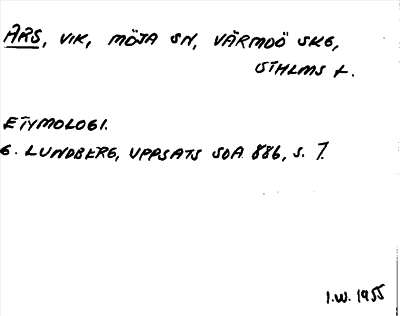 ARS, VIK, MÖJA SN, VÄRMDÖ SKG,
STHLMS L.
ETYMOLOGI.
G. LUNDBERG, UPPSATS SOA 886, S. 7.
I.W. 1955